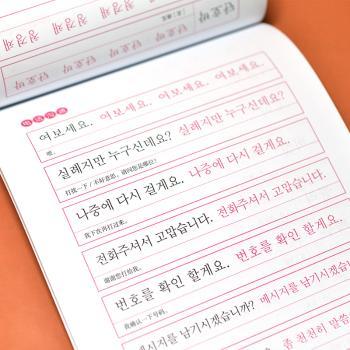 여보세요. 여보세요. 여보세요.
喂。
실례지만 누구신데요? 실례지만 누구신데요?
打扰一下/不好意思，请问您是哪位?
나중에 다시 걸게요. 나중에 다시 걸게요.
我下次再打过来。
전화주셔서 고맙습니다. 전화주셔서 고맙습니다.
谢谢您打给我。
번호를 확인 할게요. 번호를 확인 할게요.
我确认一下号码。
메시지를 남기시겠습니까? 메시지를 남기시겠
좀 천천히 말씀